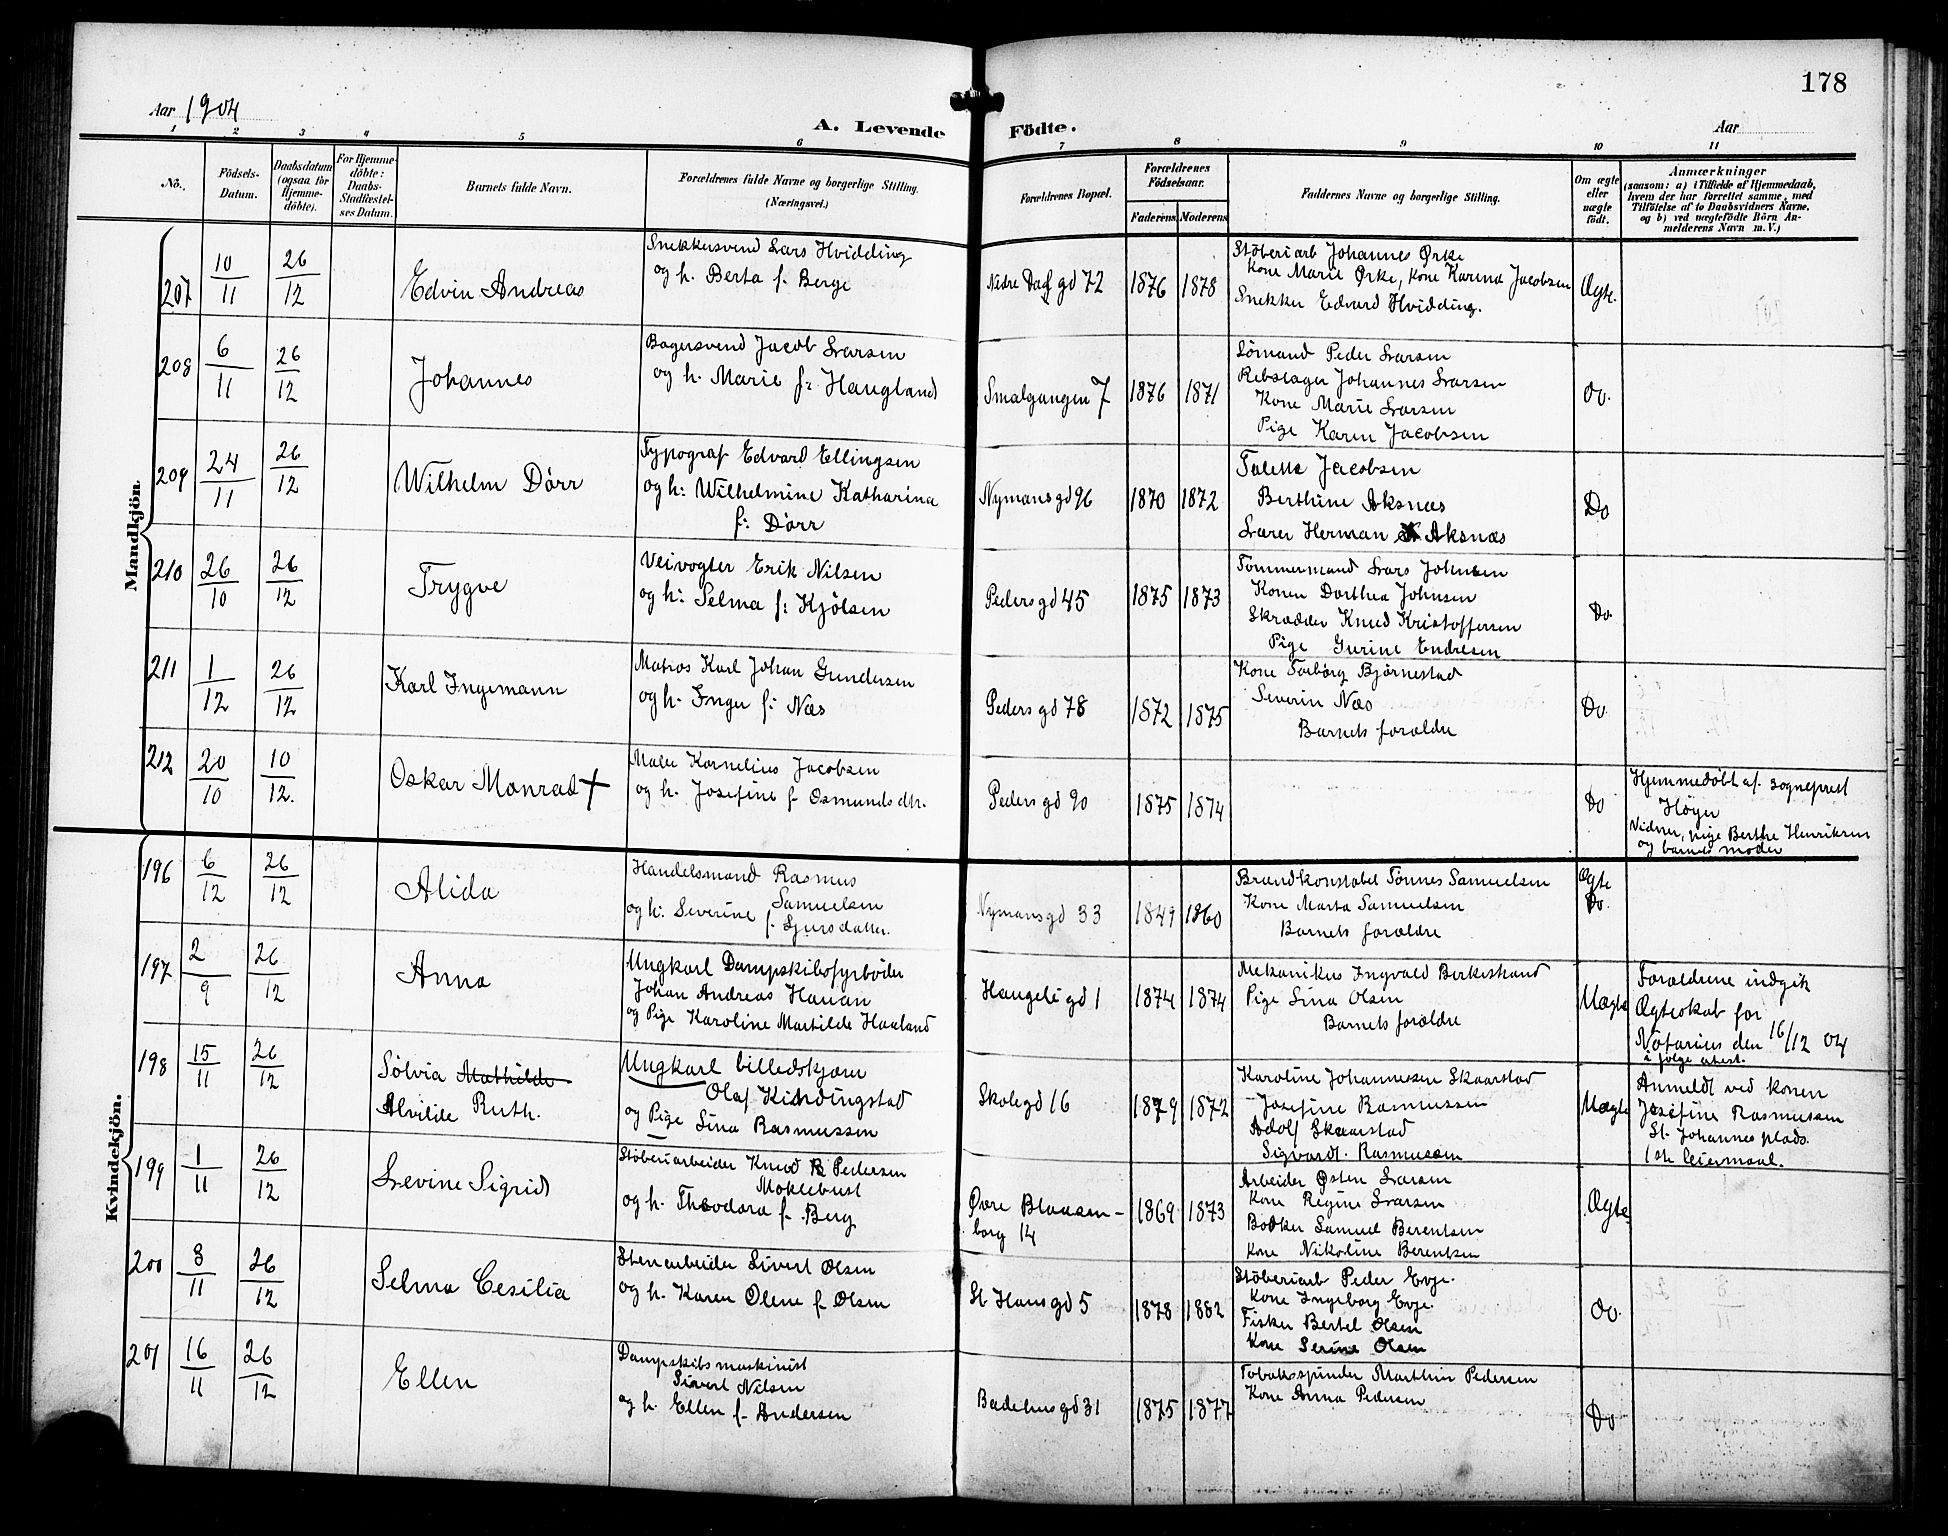 178
Aar 1904
A. Levende Födte.
Aar
1 2 3 4 5 6 7 8 9 10 11
No.
Födsels-Datum.
Daabsdatum (ogsaa for Hjemmedöbte).
For Hjemmedöbte: Daabs-Stadfæstelses Datum.
Barnets fulde Navn.
Forældrenes fulde Navne og borgerlige Stilling.
(Næringsvei.)
Forældrenes Bopæl.
Forældrenes Födselsaar.
Faderens Moderens
Faddernes Navne og borgerlige Stilling.
Om ægte eller uægte födt.
Anmærkninger
(saasom: a) i Tilfælde af Hjemmedaab, hvem der har forrettet samme, med Tilföielse af to Daabsvidners Navne, og b) ved uægtefödte Börn Anmelderens Navn m. V.)
Mandkjön.
207 10/11 26/12 Edvin Andreas
Snekkersvend Lars Hvidding
og h. Berta f. Berge
Nedre Dalgd 72 1876 1878
Stöberiarb Johannes Ørke
Kone Marie Ørke, Kone Karina Jacobsen
Snekker Edvard Hvidding.
Ægte.
208 6/11 26/12 Johannes
Bagersvend Jacob Larsen
og h. Marie f: Haugland
Smalgangen 7 1876 1871
Sömand Peder Larsen
Rebslager Johannes Larsen
Kone Marie Larsen
Pige Karen Jacobsen
Do.
209 24/11 26/12 Wilhelm Dörr
Typograf Edvard Ellingsen
og h: Wilhelmine Katharina
f: Dörr
Nymansgd 96 1870 1872
Jacobsen
Berthine Aksnæs
Lærer Herman Aksnæs
Do
210 26/10 26/12 Trygve
Veivogter Erik Nilsen
og h: Selma f: Kjölsen
Pedersgd 45 1875 1873
Tömmermand Lars Johnsen
Konen Dorthea Johnsen
Skrædder Knud Kristoffersen
Pige Gurine Endresen
Do.
211 1/12 26/12 Karl Ingemann
Matros Karl Johan Gundersen
og h. Inger f: Næs
Pedersgd 78 1872 1875
Kone Torborg Bjørnestad
Severin Næs
Barnets forældre
Do.
212 20/10 10/12. Oskar Monrad +
Maler Kornelius Jacobsen
og h. Josefine f. Osmundsdtr.
Pedersgd 90 1875 1874
Do
Hjemmedöbt af sogneprest
Höyer
Vidner, pige Berthe Henriksen
og barnets moder
Kvindekjön.
196 6/12 26/12 Alida
Handelsmand Rasmus
Samuelsen
og h: Severine f. Sjursdatter.
Nymansgd 33 1849 1860
Brandkonstabel Tönnes Samuelsen
Kone Marta Samuelsen
Barnets forældre
Ægte
Do.
197 2/9 26/12 Anna
Ungkarl Dampskibsfyrböder
Johan Andreas Hauan
og Pige Karoline Martilde Haaland
Haugeligd 1 1874 1874
Mekanikus Ingvald Birkestrand
Pige Lina Olsen
Barnets forældre
Uægte
Forældrene indgik
Ægteskab for
Notarius den 16/12 04
i fölge attest.
198 15/11 26/12 Sölvia Mathilde
Alvilde Ruth.
Ungkarl billedskjær
Olaf Kindingstad
og Pige Lina Rasmussen
Skolegd 16 1879 1872
Karoline Johannesen Skaarstad
Josefine Rasmussen
Adolf Skaarstad
Sigvardt. Rasmussen
Uægte
Anmeldt ved konen
Josefine Rasmussen
St. Johannes plads.
1ste leiermaal.
199 1/11 26/12 Levine Sigrid
Stöberiarbeider Knud B Pedersen
Moklebust
og h. Theodora f. Berg
Øvre Blaasen-
borg 14
1869 1873
Arbeider Østen Larsen
Kone Regine Larsen
Bödker Samuel Berentsen
Kone Nikoline Berentsen
Ægte
200 8/11 26/12 Selma Cesilia
Stenarbeider Sivert Olsen
og h. Karen Olene f. Olsen
St Hansgd 5 1878 1882
Stöberiarb Peder Evje.
Kone Ingeborg Evje.
Fisker Bertel Olsen
Kone Serine Olsen
Do.
201 16/11 26/12 Ellen
Dampskibsmaskinist
Sivert Nilsen
og h. Ellen f. Andersen
Badehusgd 31 1875 1877
Tobaksspinder Marthin Pedersen
Kone Anna Pedersen
Do